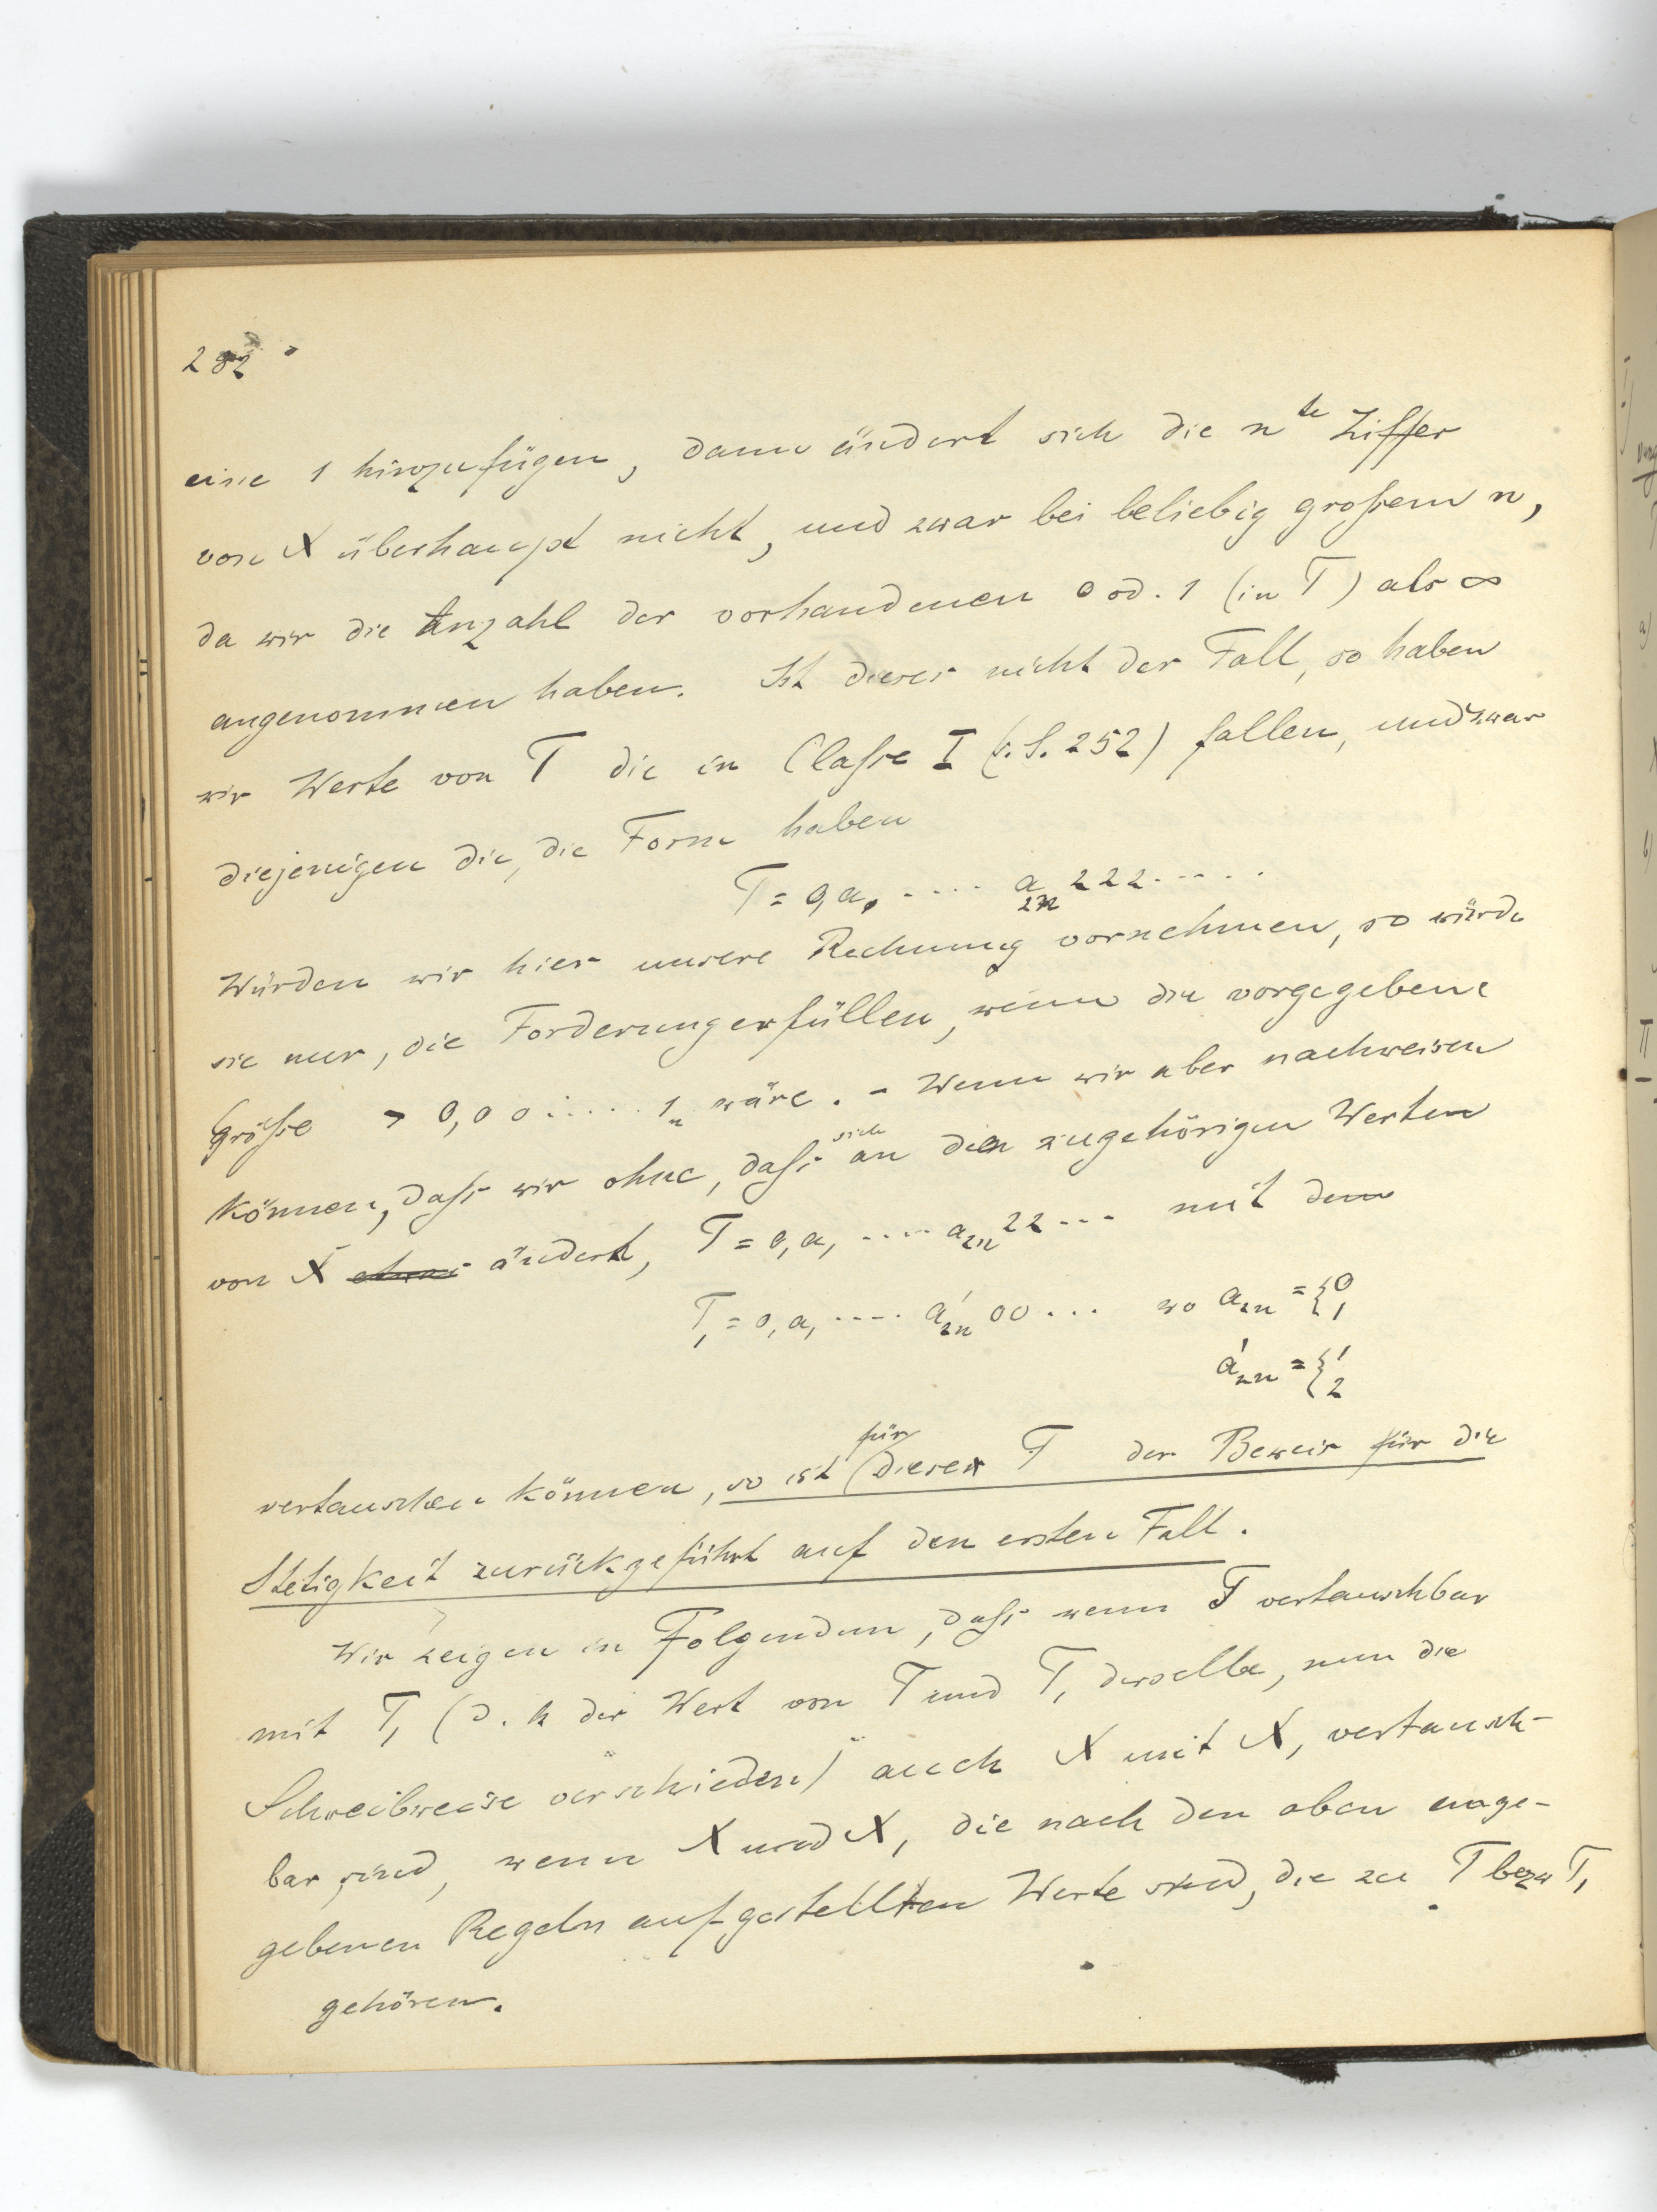 282
eine 1 hinzufügen, dann ändert sich die n^te Ziffer
von X überhaupt nicht, und zwar bei beliebig großem n,
da wir die Anzahl der vorhandenen 0 od. 1 (in T) als ∞
angenommen haben. Ist dieses nicht der Fall, so haben
wir Werte von T die in Claſse I (s. S. 252) fallen, und zwar
diejenigen die, die Form haben
T = 0,a, ···· a_2n 222·····
Würden wir hier unsere Rechnung vornehmen, so würde
sie nur, die Forderung erfüllen, wenn die vorgegebene
Größe > 0,00·····1_n wäre. – Wenn wir aber nachweisen
können, daſs wir ohne, daſs sich an den zugehörigen Werten
von X etwas ändert, T = 0,a, ····a_2n 22--- mit dem
T, = 0,a, ···· a'_2n 00... wo a_2n = {0 1
a'_2n = {1 2
vertauschen können, so ist für dieses T der Beweis für die
Stetigkeit zurückgeführt auf den ersten Fall.
Wir zeigen in Folgendem, daſs wenn T vertauschbar
mit T, (d. h der Wert von T und T, derselbe, nur die
Schreibweise verschieden) auch X mit X, vertausch-
bar sind, wenn X und X, die nach den oben ange-
gebenen Regeln aufgestellten Werte sind, die zu T bezw T,
gehören.